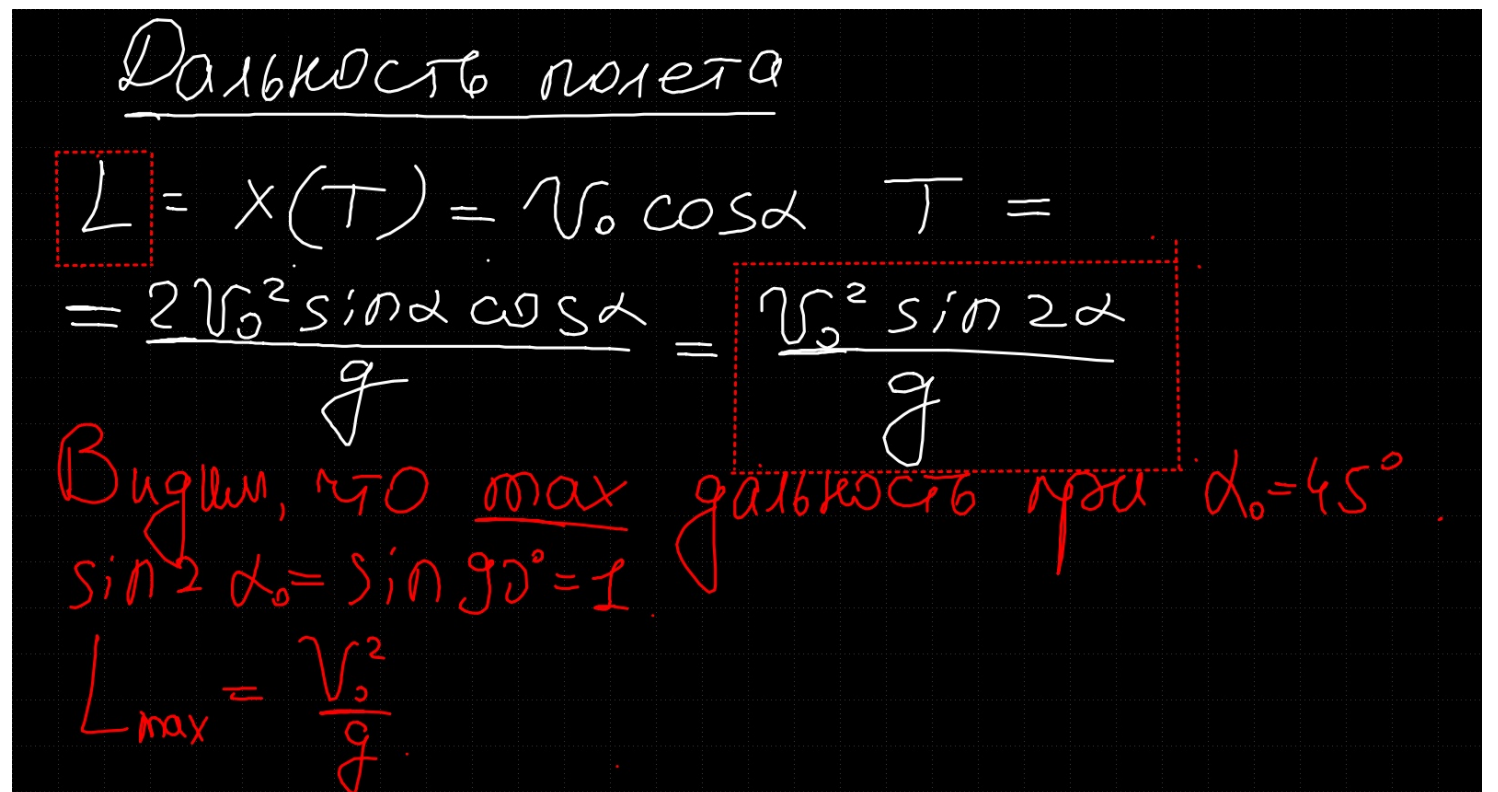 Дальность полета
L = x(T) = v₀ cosα T =
= 2v₀² sinα cosα / g = v₀² sin 2α / g
Видим, что max дальность при α₀ = 45°.
sin 2α₀ = sin 90° = 1.
L max = v₀² / g.